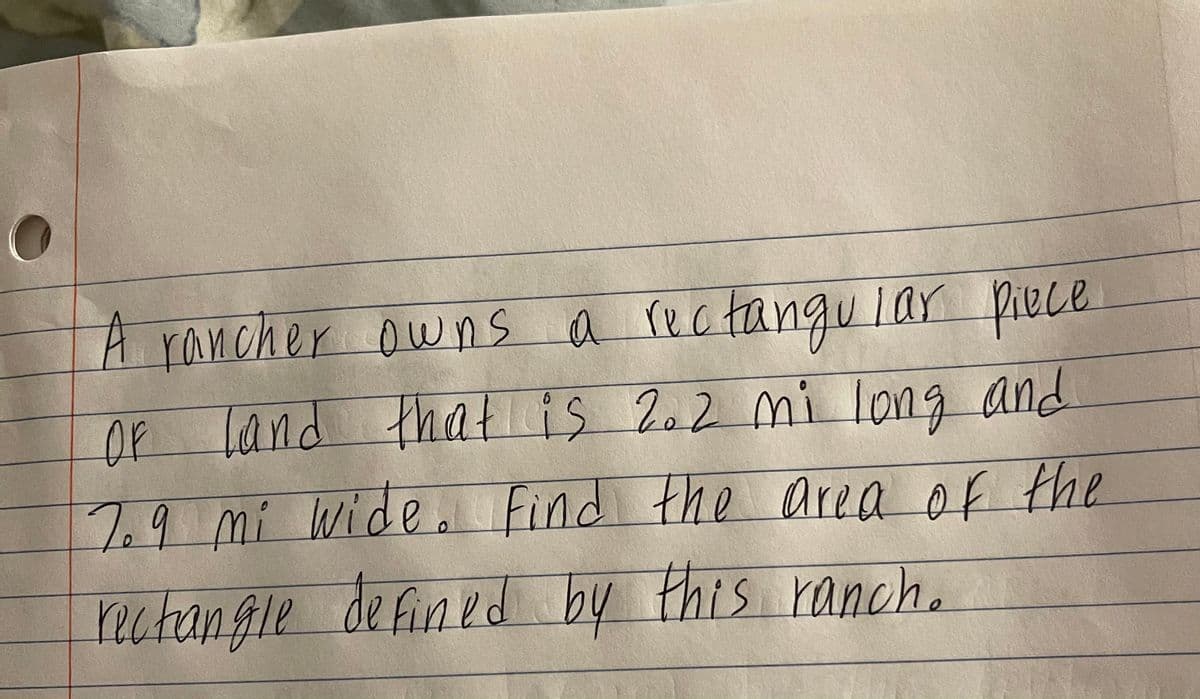 A rancher owns a rectangular piece
OF land that is 2.2 mi long and
7.9 mi wide. Find the area of the
rectangle defined by this ranch.